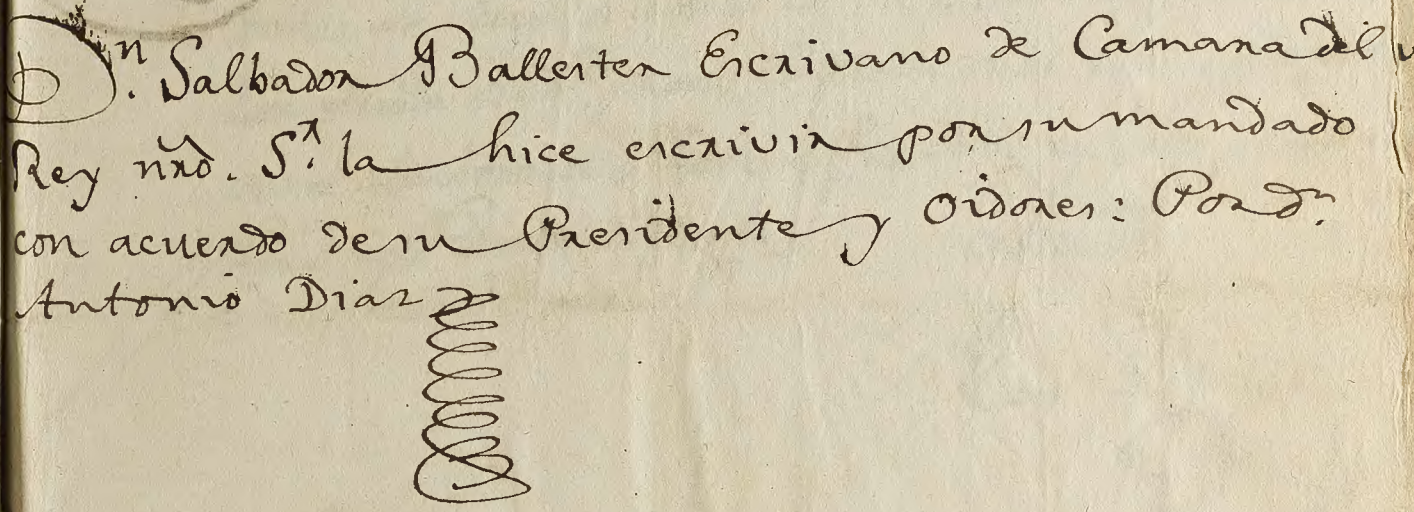 Dn. Salbador Ballester Escrivano de Camara del
Rey nrõ. Sr. la hice escrivir por su mandado
con acuerdo de su Presidente y Oidores: Por dn.
Antonio Diaz